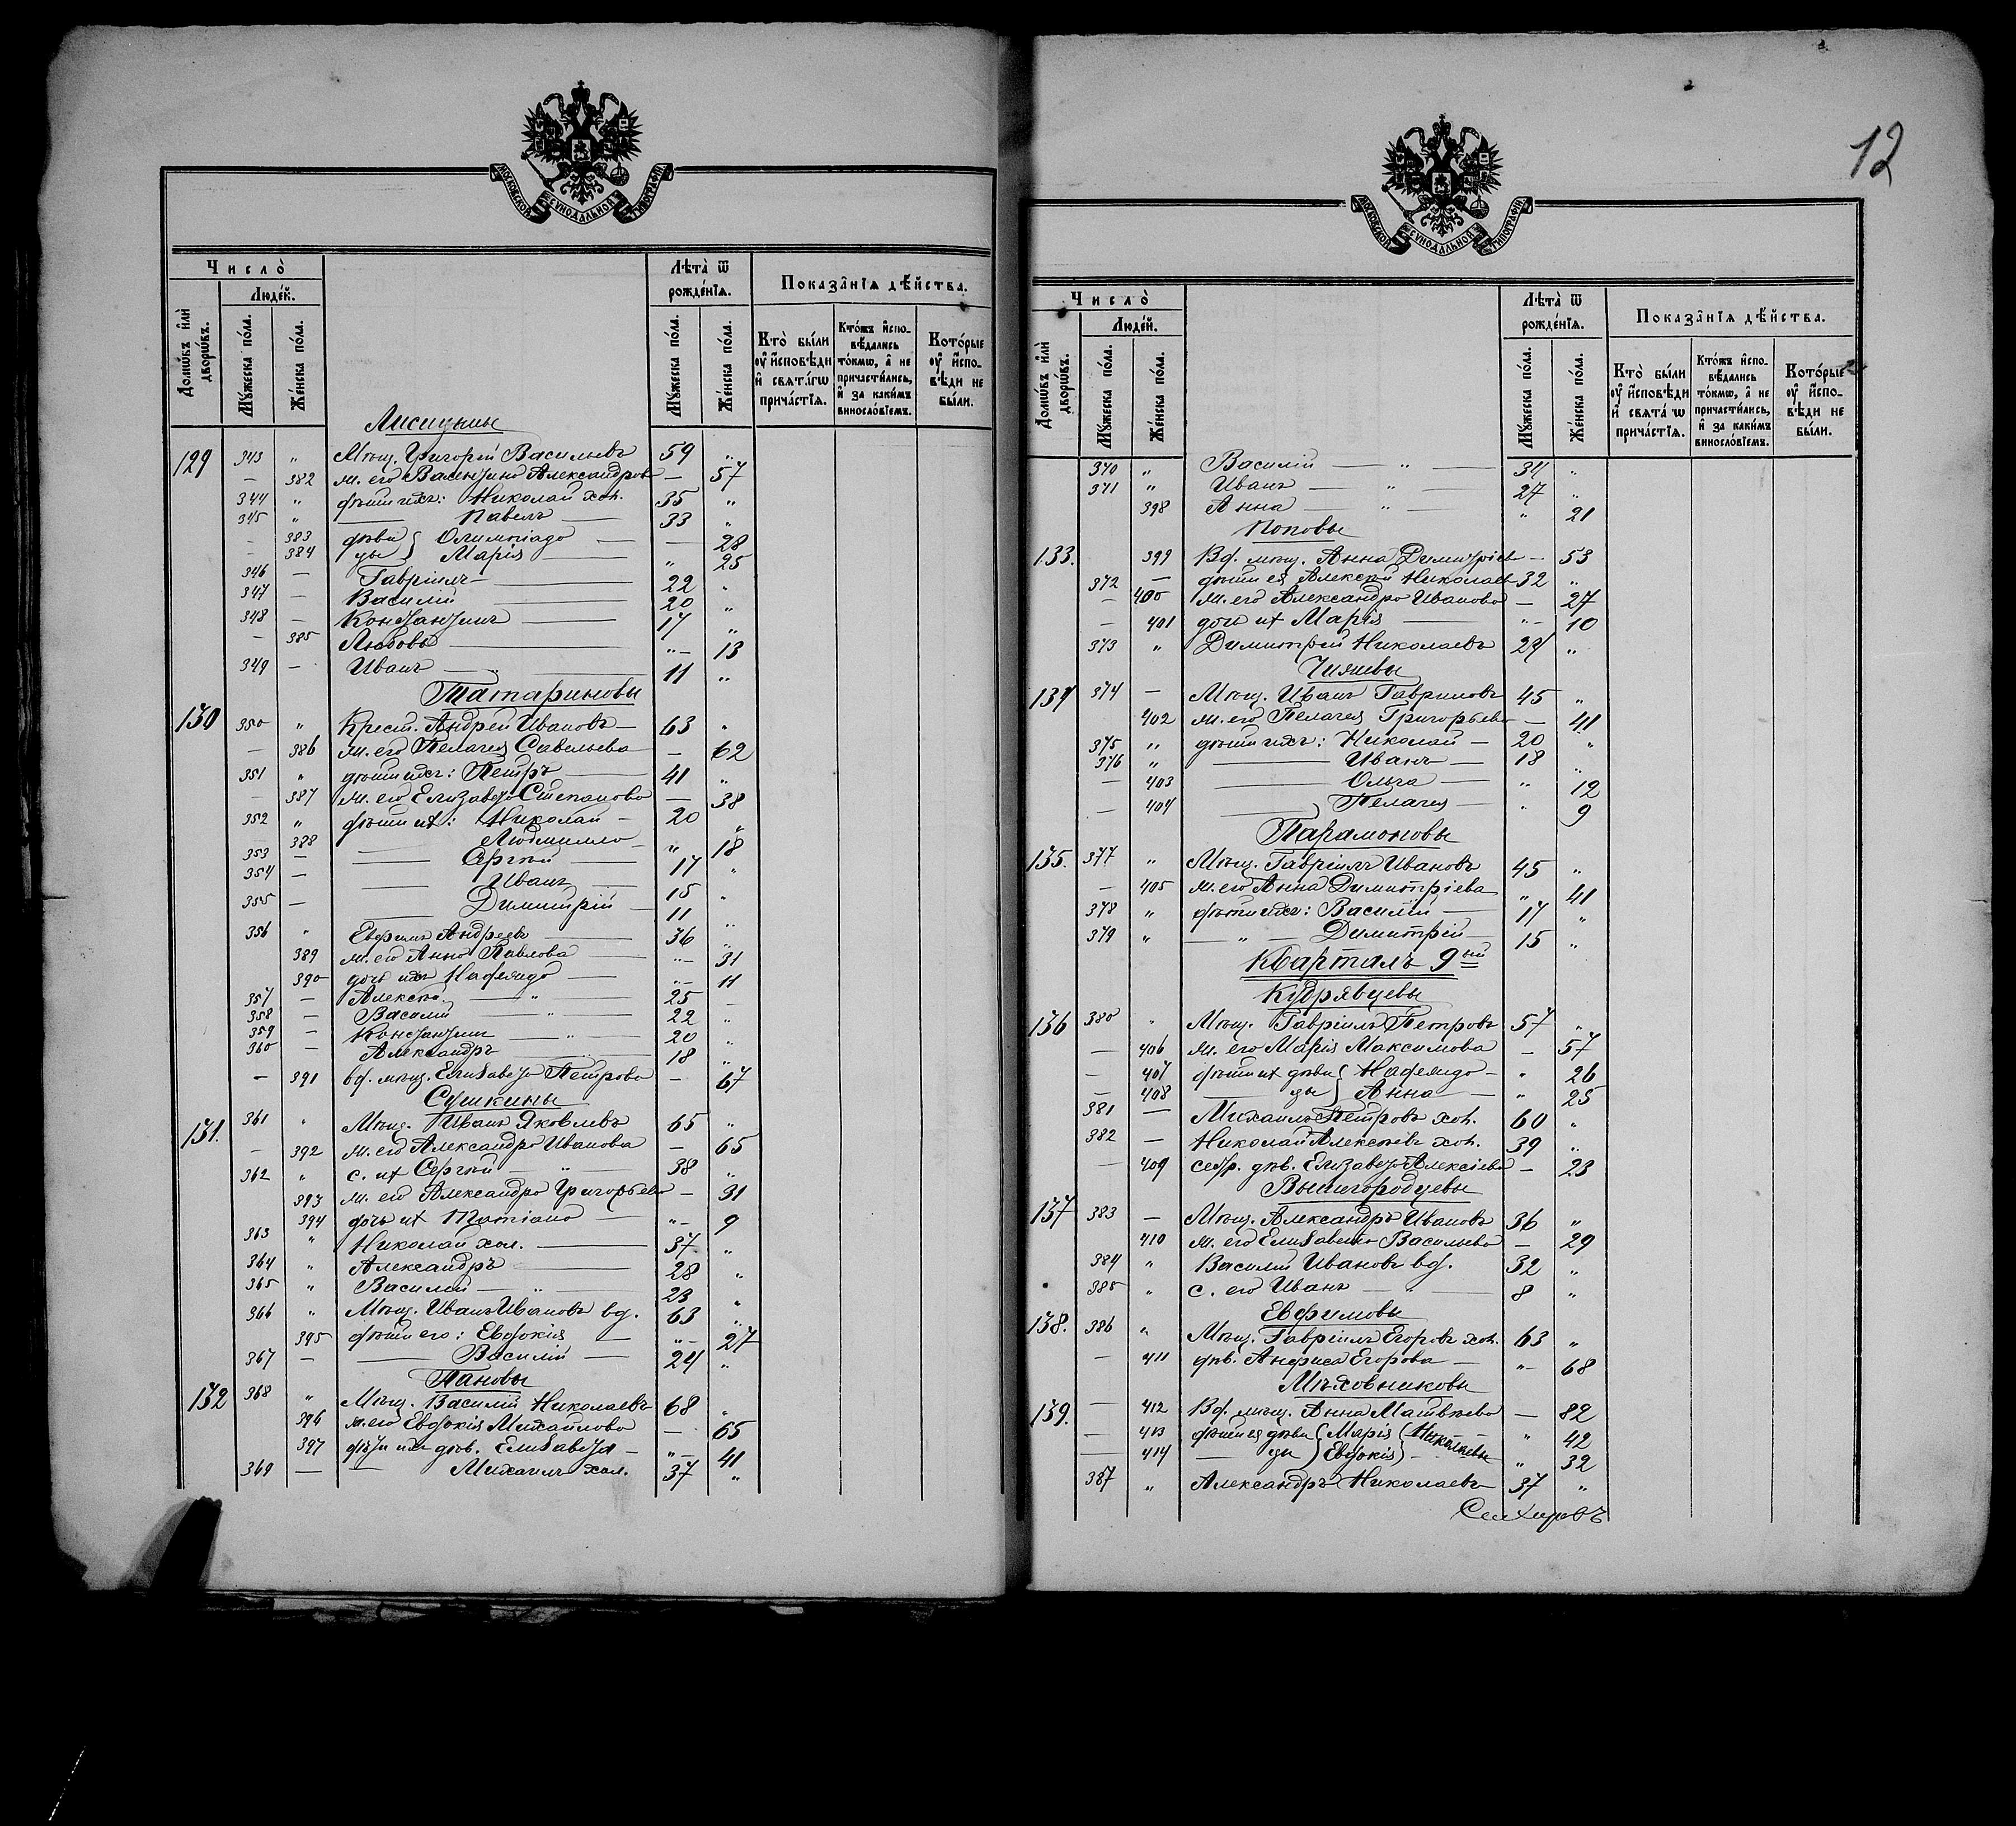 МОСКОВСКОЙ СѴНОДАЛЬНОЙ ТИПОГРАФІИ
Число̀
Людéй.
Домѡ́въ и҆лѝ дворѡ́въ.
Мꙋ́жеска по́ла.
Же́нска по́ла.
Лѣта̀ ѿ рожде́нїѧ.
Мꙋ́жеска по́ла.
Же́нска по́ла.
Показа̂нїѧ дѣ́йства.
Кто̀ бы́ли оу҆ и҆сповѣди и҆ свѧта́гѡ прича́стїѧ.
Кто́жъ и҆спо-вѣдались то́кмѡ, а҆ не причасти́лись, и҆ за каки́мъ винослóвїемъ.
Кото́рые оу҆ и҆спо-вѣди не бы́ли.
Лисицыны
129 343 " Мѣщ. Григорій Васильевъ 59 "
— 382 ж. его Валентина Александров — 57
344 " дѣти ихъ: Николай хол. 35 "
345 " — Павелъ — 33 "
— 383 дѣви Олимпіада — — 28
— 384 цы Марія — " 25
346 — Гавріилъ — 22 "
347 — Василій — 20 "
348 — Константинъ — 17 "
— 385 Любовь — " 13
349 — Иванъ — 11 "
Татариновы
130 350 " Крест. Андрей Ивановъ — 63 "
— 386 ж. его Пелагея Савельева — 62
351 " дѣти ихъ: Петръ — 41 "
— 387 ж. его Елизавета Степанова — 38
352 " дѣти их: Николай — 20 "
388 — Людмилла — " 18
353 — — Сергѣй — 17 "
354 — — Иванъ — 15 "
355 — — Димитрій — 11 "
356 " Андреевъ — 36 "
389 ж. его Анна Павлова — " 31
390 дочь ихъ Надежда — " 11
357 — Алексѣй — " — 25 —
358 — Василій — " — 22 "
359 — Константинъ — " — 20 "
360 — Александръ — 18 "
— 391 вд. мѣщ. Елизавета Петрова — 67
Сушкины
131. 361 " Мѣщ. Иванъ Яковлевъ 65 "
— 392 ж. его Александра Иванова — 65
362 " с. их Сергѣй — " — 38 "
393 ж. его Александра Григорьева — 31
394 дочь их Татіана — " 9
363 " Николай хол. — 37 "
364 " Александръ — 28 "
365 " Василій — " — 23 "
366 " Мѣщ. Иванъ Ивановъ вд. 63 "
395 дѣти его: Евдокія — " 27
367 — — Василій — 24 "
Пановы
132 368 " Мѣщ. Василій Николаевъ 68 "
396 ж. его Евдокія Михайлова — 65
397 дѣти ихъ дѣв. Елизавета — " 41
369 — — Михаилъ хол. 37 "
12
МОСКОВСКОЙ СѴНОДАЛЬНОЙ ТИПОГРАФІИ
Число̀
Людéй.
Домѡ́въ и҆лѝ дворѡ́въ.
Мꙋ́жеска по́ла.
Же́нска по́ла.
Лѣта̀ ѿ рожде́нїѧ.
Мꙋ́жеска по́ла.
Же́нска по́ла.
Показа̂нїѧ дѣ́йства.
Кто̀ бы́ли оу҆ и҆сповѣди и҆ свѧта́ ѡ прича́стїѧ.
Кто́жъ и҆спо-вѣдались то́кмѡ, а҆ не причасти́лись, и҆ за каки́мъ винослóвїемъ.
Кото́рые оу҆ и҆спо-вѣди не бы́ли.
370 " Василій — " — 31 "
371 " Иванъ — " — 27 "
398 Анна — " — " 21
Поповы
133. 399 Вд. мѣщ. Анна Димитріев — 53
372 — дѣти ея Алексѣй Николаев 32 "
— 400 ж. его Александра Иванова — 27
— 401 дочь их Марія — " 10
373 " Димитрій Николаевъ 29 "
134 374 — Мѣщ. Иванъ Гавриловъ 45 "
402 ж. его Пелагея Григорьева — 41
375 " дѣти ихъ: Николай — 20 "
376 " — Иванъ — 18 "
— 403 — Ольга — " 12
— 404 — Пелагея — " 9
Парамоновы
135. 377 " Мѣщ. Гавріилъ Ивановъ 45 "
— 405 ж. его Анна Димитріева " 41
378 " дѣти ихъ: Василій — 17 "
379 " — " — Димитрій — 15 "
Кварталъ 9ый
Кудрявцевы
136 380 " Мѣщ. Гавріилъ Петровъ 57 "
— 406 ж. его Марія Максимова — 57
— 407 дѣти их дѣви Надежда — " 26
— 408 — цы Анна — " 25
381 — Михаилъ Петровъ хол. 60 "
382 — Николай Алексѣевъ хол. 39 "
— 409 сестр. дѣв. Елизавета Алексіева — 23
Вышегородцевы
137 383 — Мѣщ. Александръ Ивановъ 36 "
410 ж. его Елизавета Васильева — 29
384 " Василій Ивановъ вд. 32 "
385 " с. его Иванъ — " — 8 "
Евфимовы
138. 386 " Мѣщ. Гавріилъ Егоровъ хол. 63 "
— 411 дѣв. Анфиса Егорова — " 68
Мѣховниковы
139. — 412 Вд. мѣщ. Анна Матвѣева — 82
— 413 дѣти ея дѣви Марія Николаевы " 42
— 414 — цы Евдокія — " 32
387 " Александръ Николаевъ 37 "